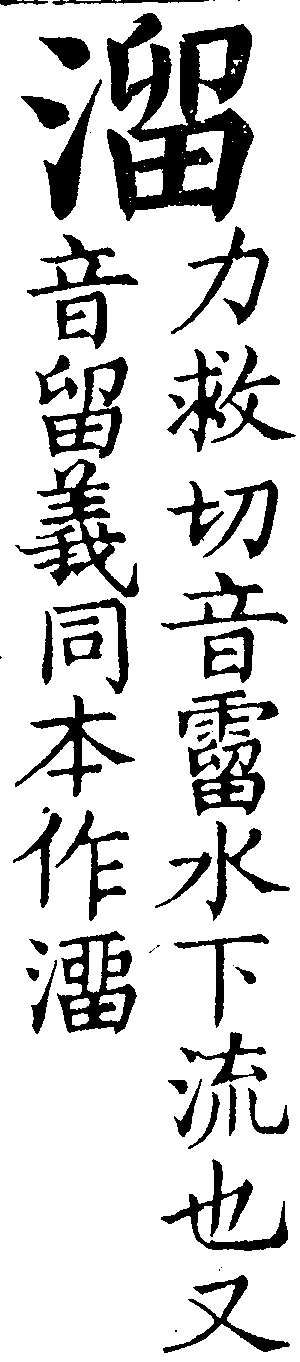 溜
力救切音霤水下流也又
音留義同本作澑